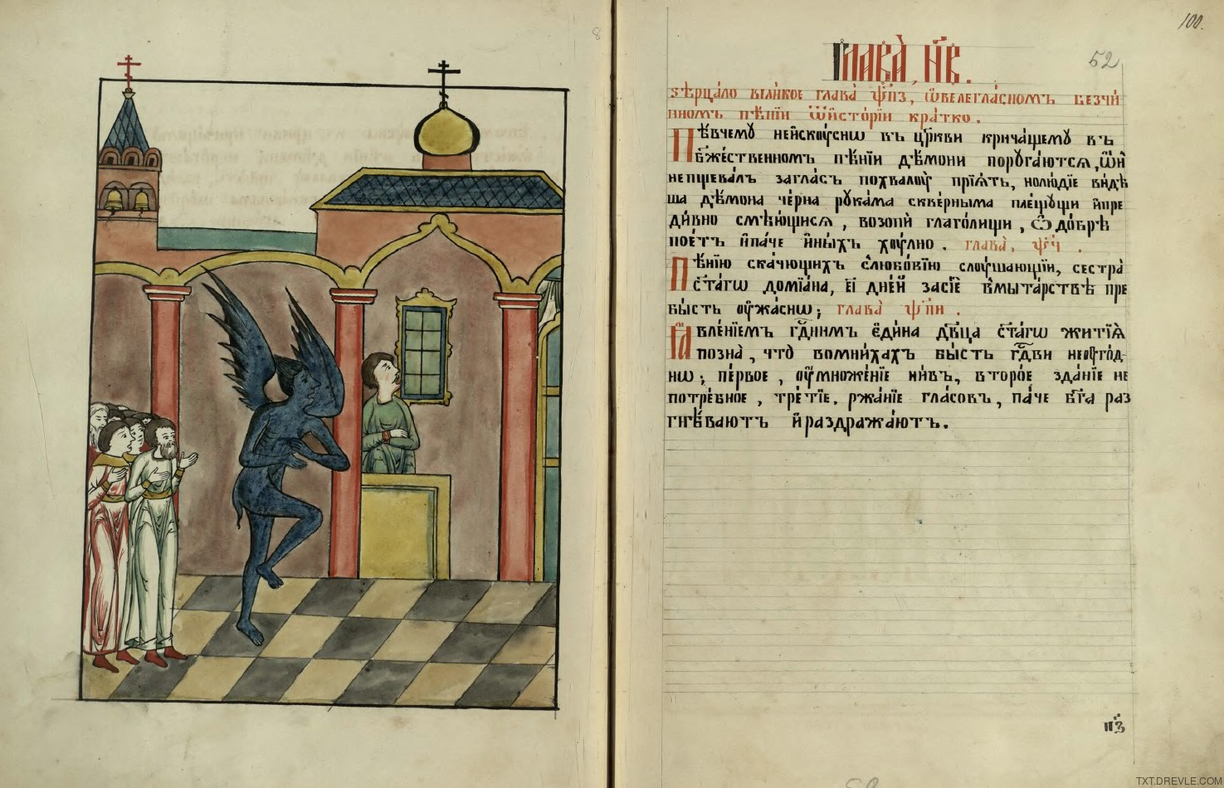 100.
52
Глава̀ н҃в.
Ѕѣрцало великое глава ѱ҃пз, ѡ велегласномъ безчи
нномъ пѣнїи ѿ исторїи кратко.
Пѣвчемꙋ неискꙋснѡ въ цр҃кви кричащемꙋ въ
бж҃ественномъ пѣнїи дѣмони порꙋгаются, ѡ҆н
непщевалъ загласъ похвалꙋ прїѧть, но людїе видѣ
ша дѣмона черна рꙋкама скверныма плещꙋщи и пре
дивно смѣющися, возопи глаголющи, ѽ добрѣ
поетъ и паче иныхъ хꙋлно. глава, ѱ҃ч .
Пѣнїю скачющихъ с любовїю слꙋшающїи, сестра
ст҃агѡ домїана, е҃ї дней за сїе в мытарствѣ пре
бысть ᲂужаснѡ; глава̀ ѱ҃пи .
Ꙗвленїемъ гд҃нимъ едина дв҃ица ст҃агѡ житїѧ
позна, что во мнихахъ бысть гд҃ви неᲂугод
нѡ; первое, ᲂумноженїе нивъ, второе зданїе не
потребное, третїе, ржанїе гласовъ, паче бг҃а раз
гнѣваютъ и раздражаютъ.
п҃з
TXT.DREVLE.COM